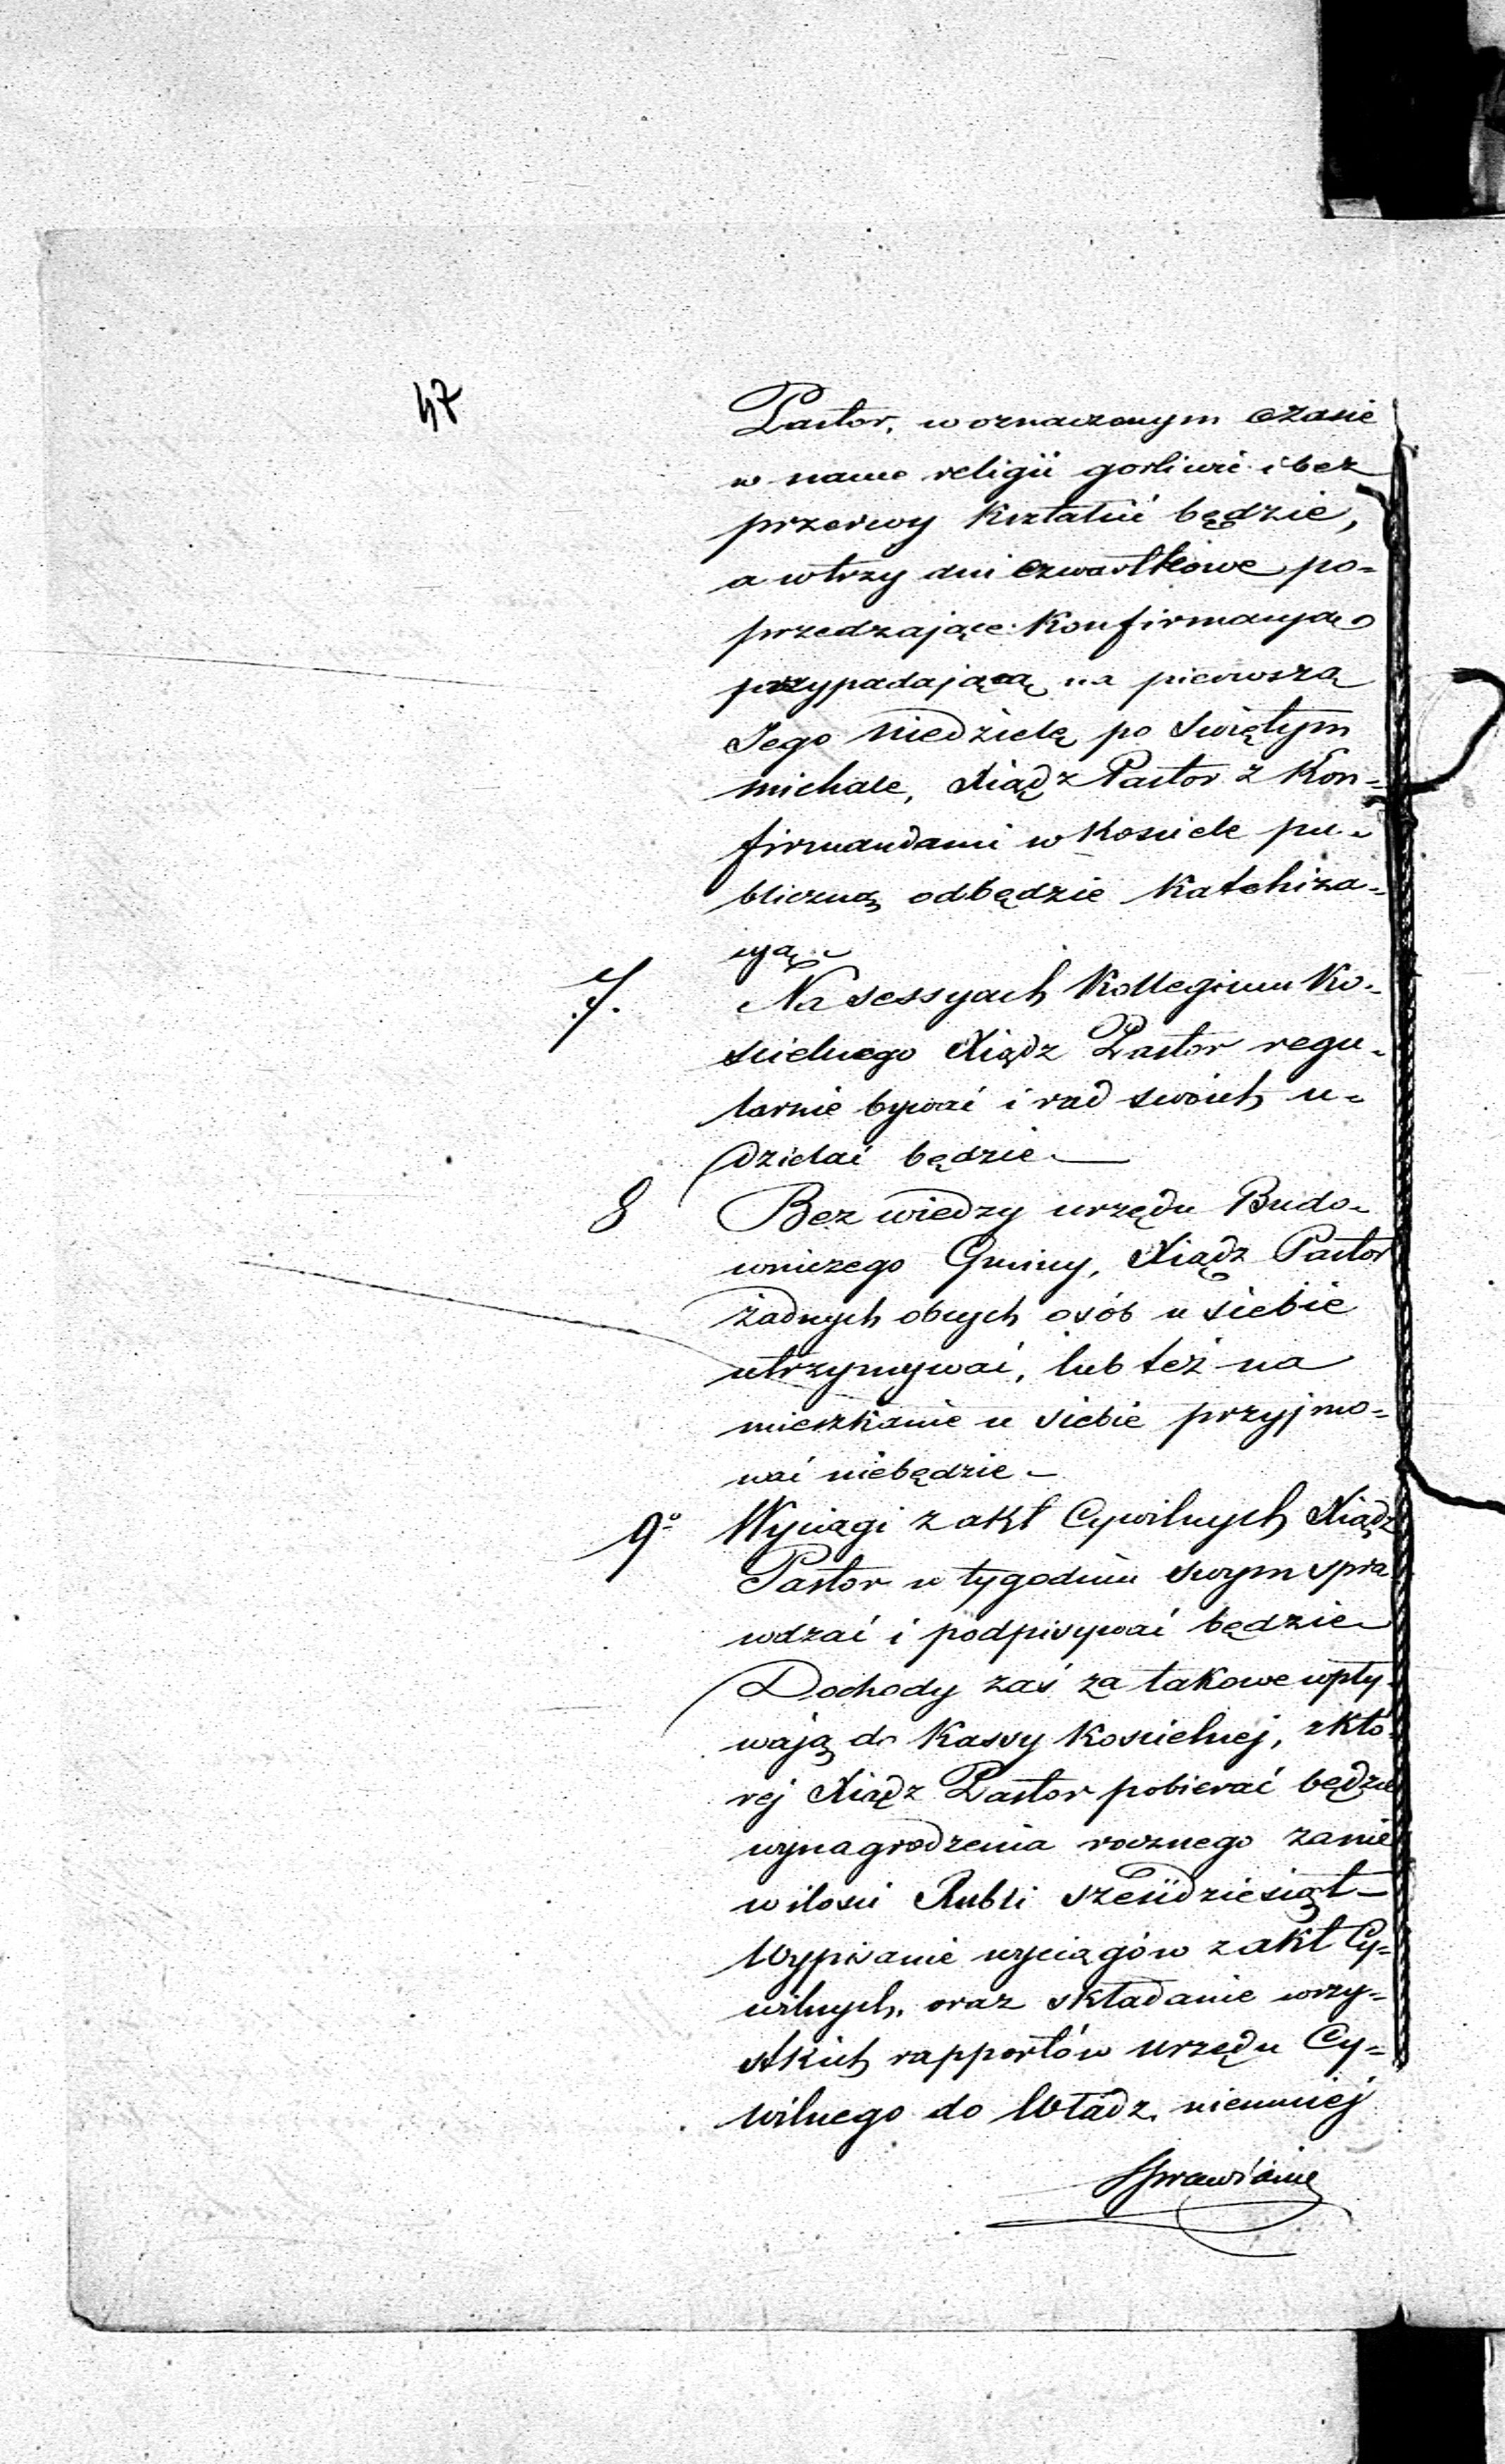 47
Pastor, w oznaczonym czasie
w nauce religii gorliwie i bez
przerwy kształcić będzie,
a w trzy dni czwartkowe po-
przedzające Konfirmacyą
przypadającą na pierwszą
Jego Niedzielę po Świętym
Michale, Xiądz Pastor z Kon-
firmandami w Kościele pu-
bliczną odbędzie Katehiza-
cyą.
7. Na sessyach Kollegium Ko-
ścielnego Xiądz Pastor regu-
larnie bywać i rad swoich u-
dzielać będzie
8 Bez wiedzy urzędu Budo-
wniczego Gminy, Xiądz Pastor
żadnych obcych osób u siebie
utrzymywać, lub też na
mieszkanie u siebie przyjmo-
wać niebędzie
9o Wyciągi z akt Cywilnych Xiądz
Pastor w tygodniu swym spra
wdzać i podpisywać będzie
Dochody zaś za takowe wpły-
wają do Kassy Kościelnej, z któ-
rej Xiądz Pastor pobierać będzie
wynagrodzenia rocznego zanie
w ilości Rubli sześćdziesiąt
Wypisanie wyciągów z akt Cy-
wilnych, oraz składanie wszy-
stkich rapportów urzędu Cy-
wilnego do Władz, niemniej
Sprawianie